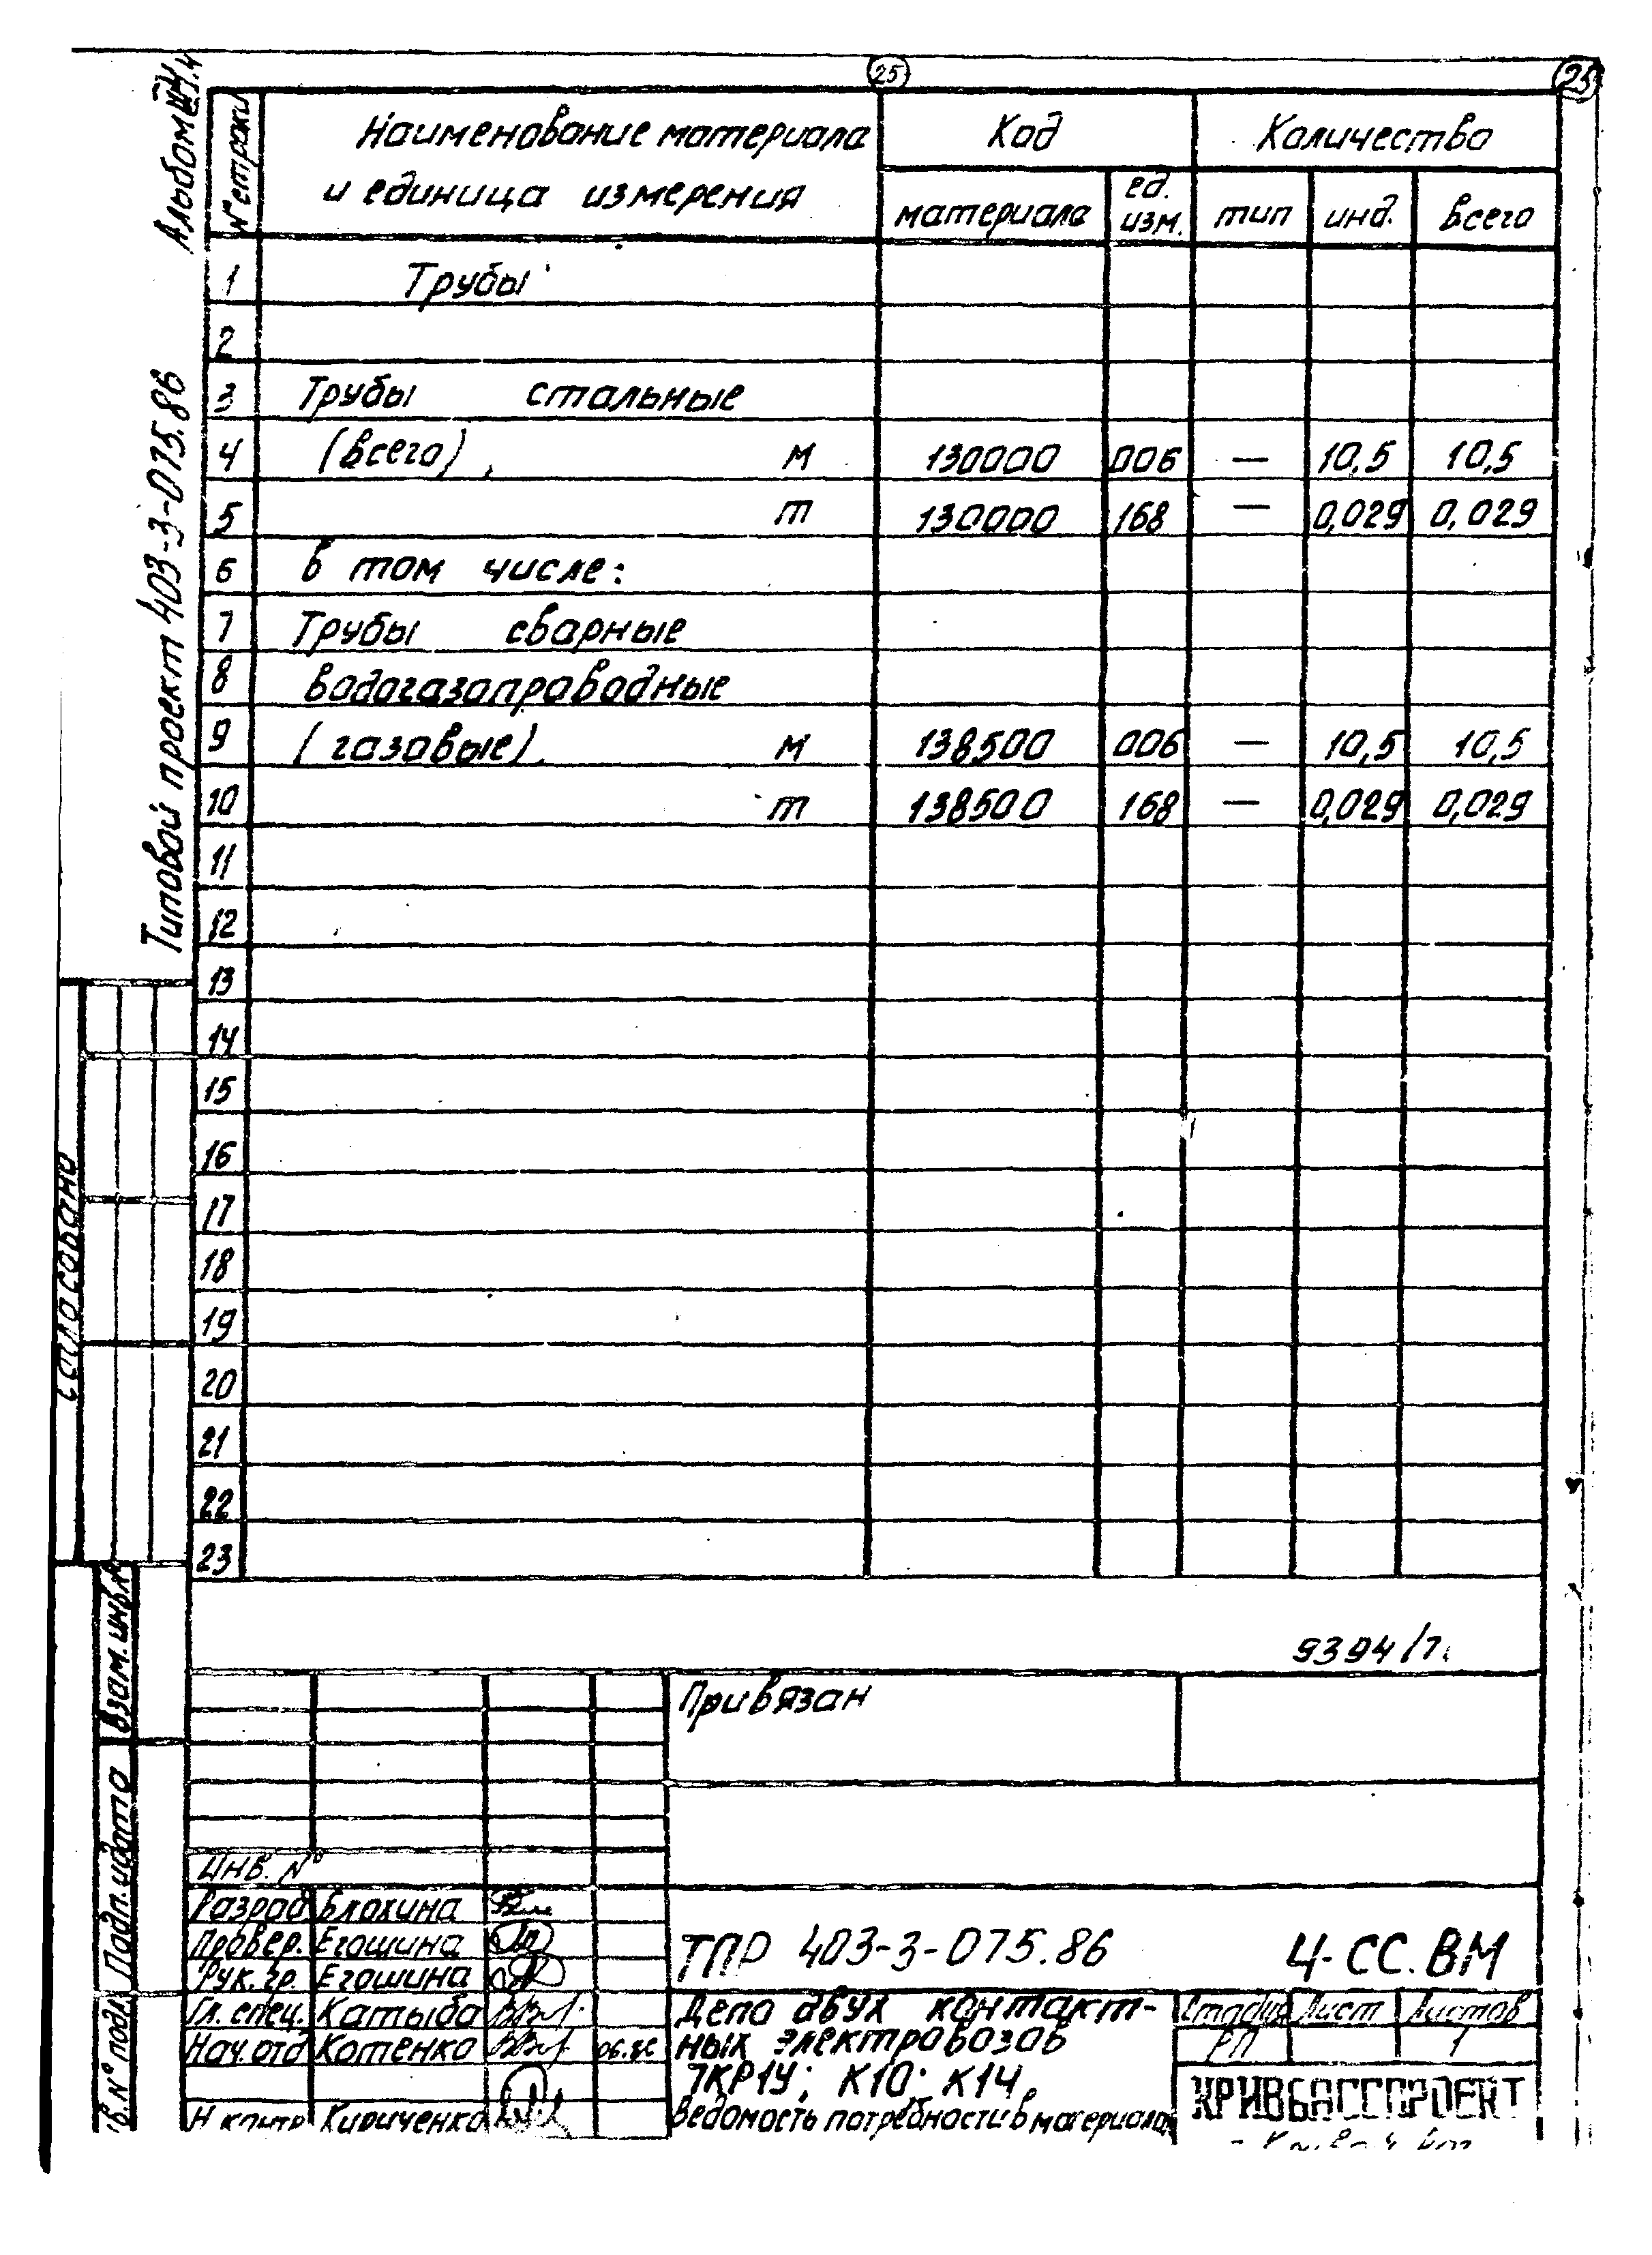 25
25
№ строки
Наименование материала
и единица измерения
Код
Количество
материала
ед. изм.
тип
инд.
всего
1 Трубы
2
3 Трубы стальные
4 (всего), м 130000 006 — 10,5 10,5
5 т 130000 168 — 0,029 0,029
6 в том числе:
7 Трубы сварные
8 водогазопроводные
9 (газовые), м 138500 006 — 10,5 10,5
10 т 138500 168 — 0,029 0,029
11
12
13
14
15
16
17
18
19
20
21
22
23
Альбом
Типовой проект 403-3-075.86
согласовано
Взам. инв.№
Подп. и дата
в.№ подл.
9394/
Привязан
Инв. №
Разраб. Блохина
Провер. Егошина
Рук. гр. Егошина
Гл. спец. Катыба
Нач. отд Котенко 06.86
Н контр Кириченко
ТПР 403-3-075.86 Ч-СС.ВМ
Депо двух контакт-
ных электровозов
7КР1У; К10; К14.
Ведомость потребности в материалах
Стадия Лист Листов
РП 1
КРИВБАССПРОЕКТ